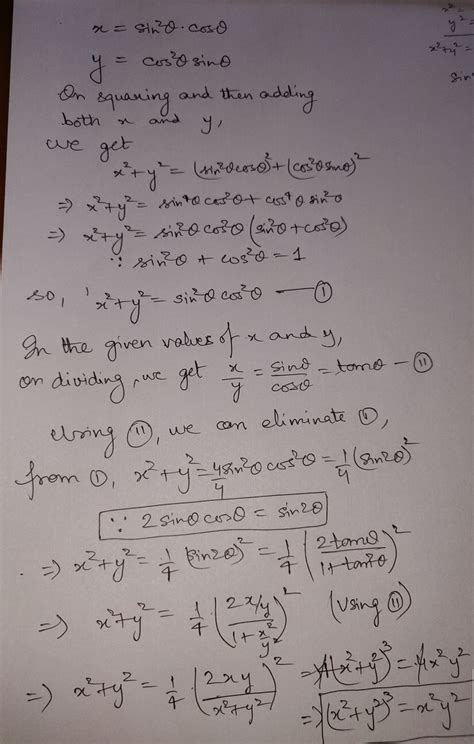 x²=
y²=
x²+y²=
sin
x = sin²θ · cosθ
y = cos²θ sinθ
On squaring and then adding
both x and y,
we get
x²+y² = (sin²θ cosθ)² + (cos²θ sinθ)²
⇒ x²+y² = sin⁴θ cos²θ + cos⁴θ sin²θ
⇒ x²+y² = sin²θ cos²θ (sin²θ + cos²θ)
∵ sin²θ + cos²θ = 1
so, x²+y² = sin²θ cos²θ — ①
In the given values of x and y,
on dividing, we get x/y = sinθ/cosθ = tanθ — ⑪
Using ⑪, we can eliminate θ,
from ①, x²+y² = 4sin²θ cos²θ/4 = 1/4 (sin2θ)²
∵ 2 sinθ cosθ = sin2θ
⇒ x²+y² = 1/4 (sin2θ)² = 1/4 (2tanθ/1+tan²θ)²
⇒ x²+y² = 1/4 (2x/y / 1+x²/y²)² (Using ⑪)
⇒ x²+y² = 1/4 (2xy/x²+y²)² ⇒ 4(x²+y²)³ = 4x²y²
⇒ (x²+y²)³ = x²y²